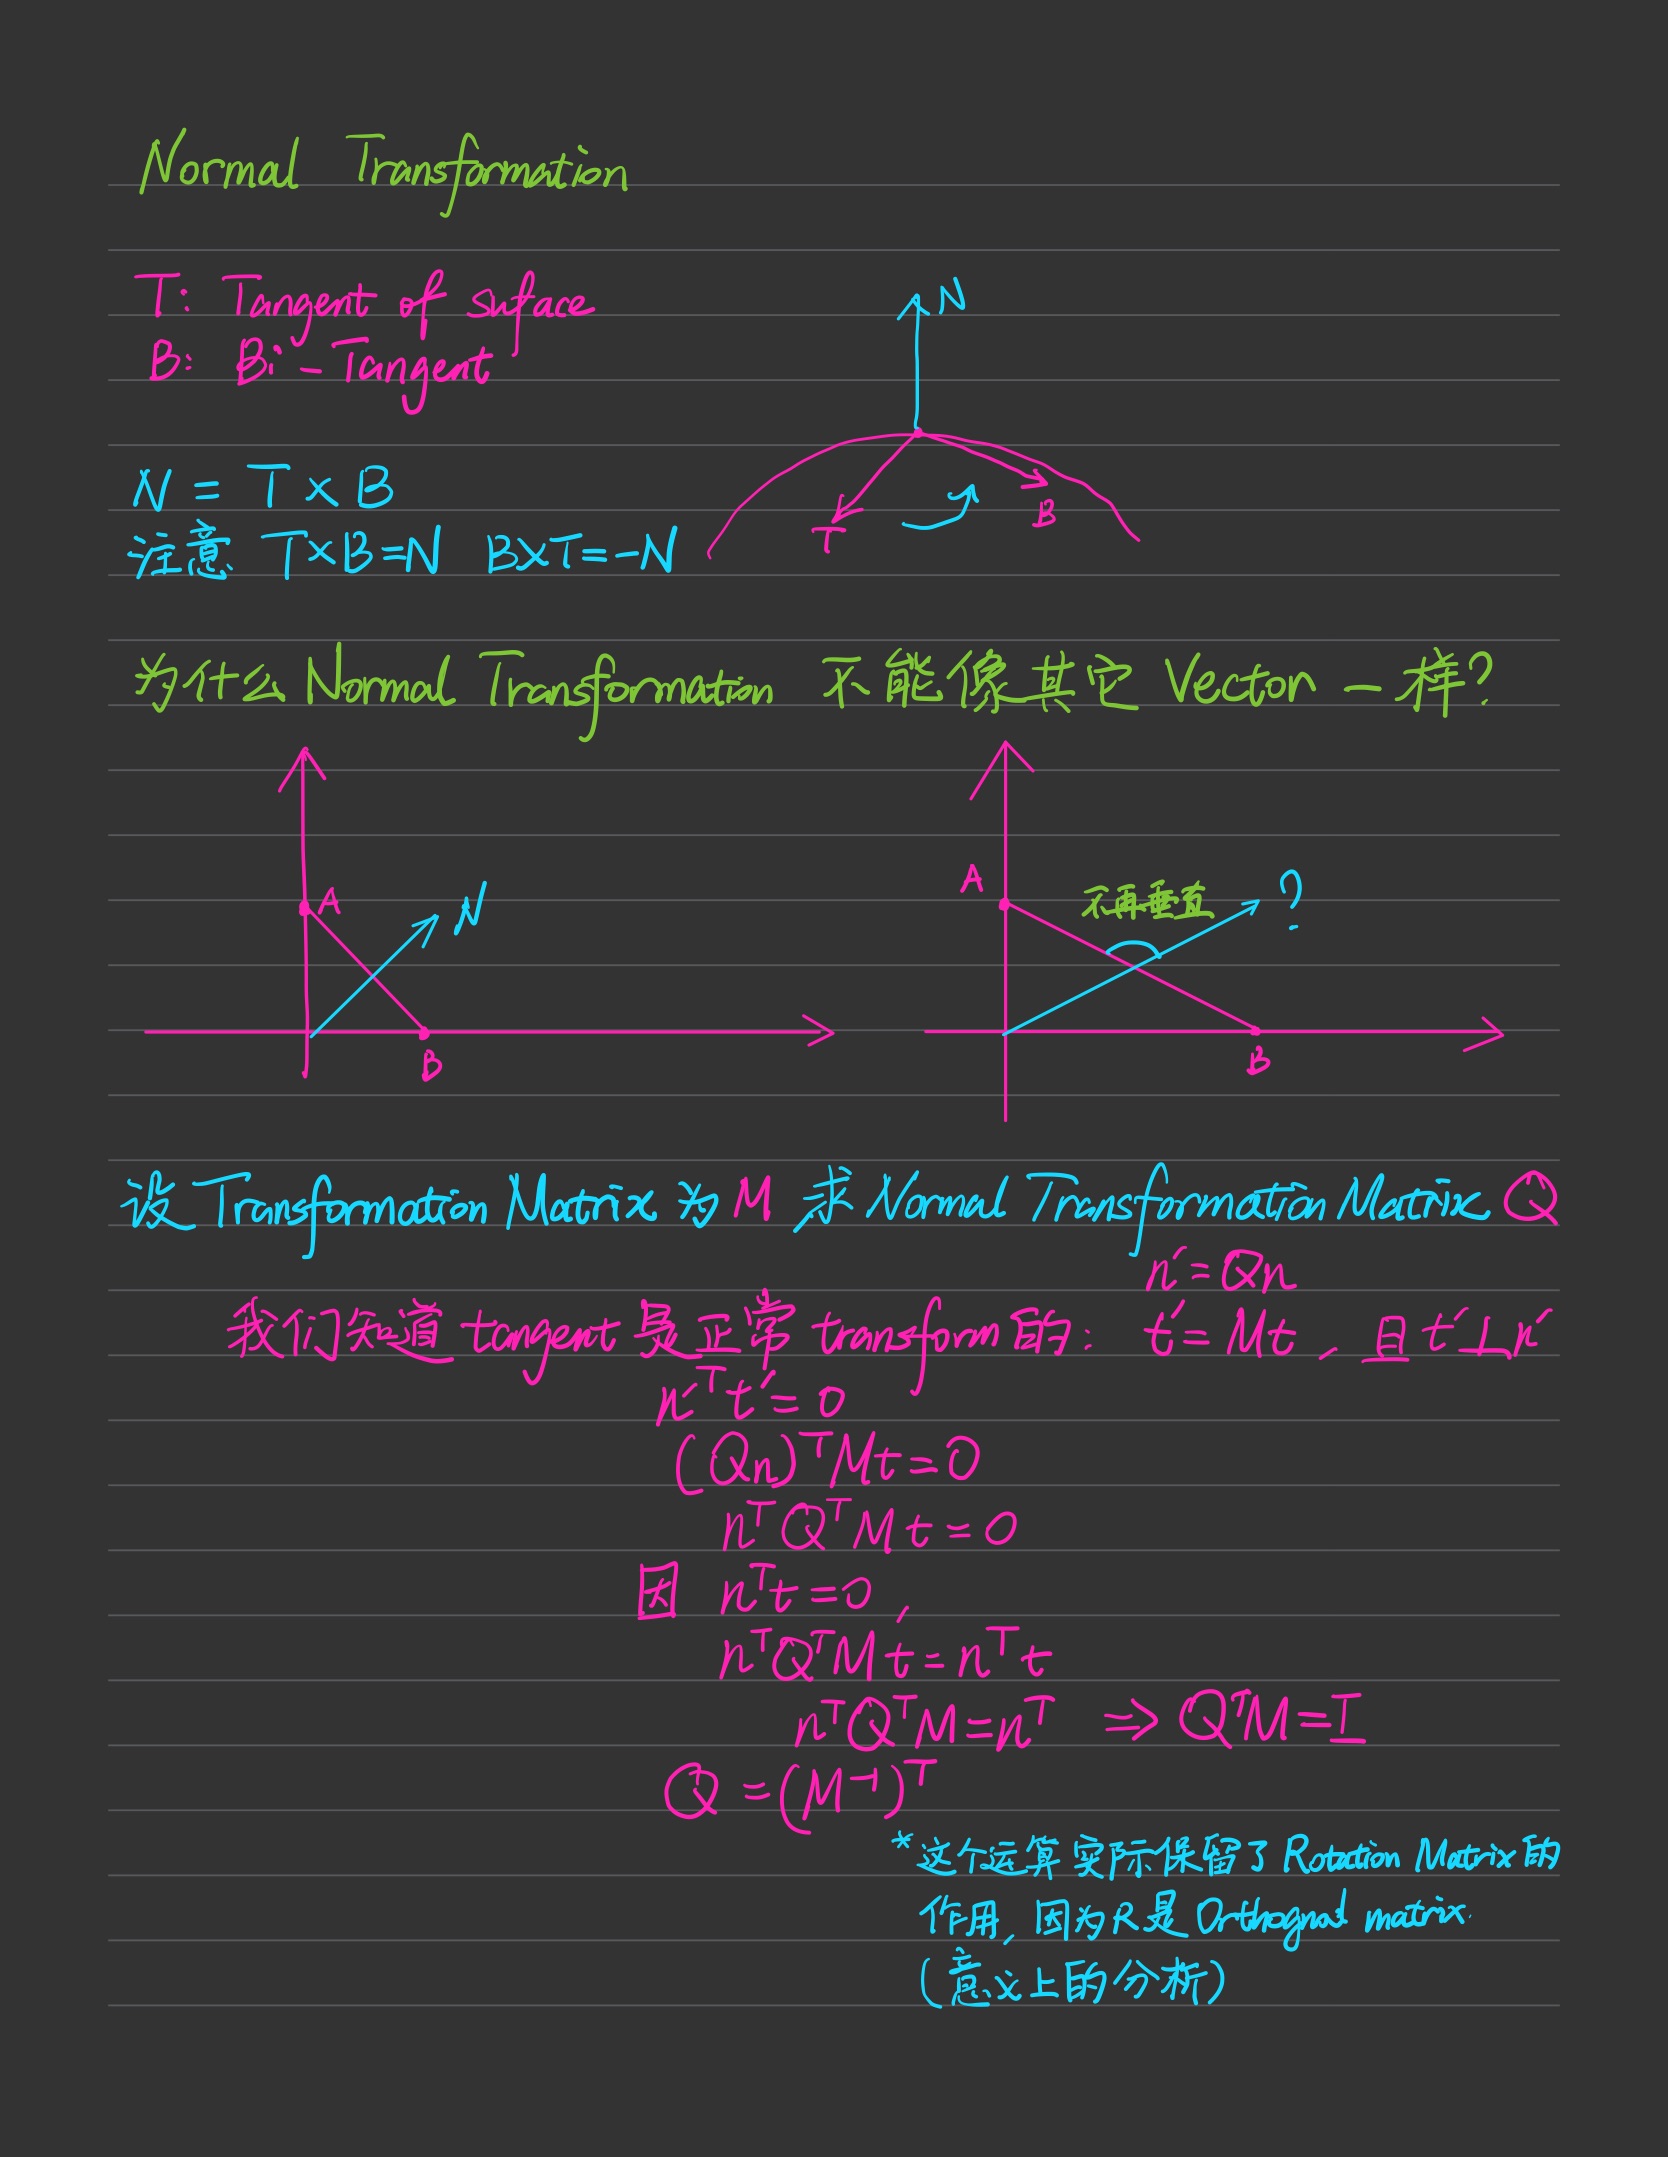 Normal Transformation
T: Tangent of suface
B: Bi-Tangent
N
T
B
N ≡ T×B
注意 T×B=N B×T=-N
为什么 Normal Transformation 不能像其它 Vector 一样?
A
N
B
A
不再垂直
?
B
设 Transformation Matrix 为 M 求 Normal Transformation Matrix Q
n'=Qn
我们知道 tangent 是正常 transform 的: t'=Mt, 且 t'⊥n'
n'ᵀt'=0
(Qn)ᵀMt=0
nᵀQᵀMt=0
因 nᵀt=0,
nᵀQᵀMt=nᵀt
nᵀQᵀM=nᵀ ⇒ QᵀM=I
Q=(M⁻¹)ᵀ
*这个运算实际保留了 Rotation Matrix 的
作用, 因为 R 是 Orthognal matrix.
(意义上的分析)